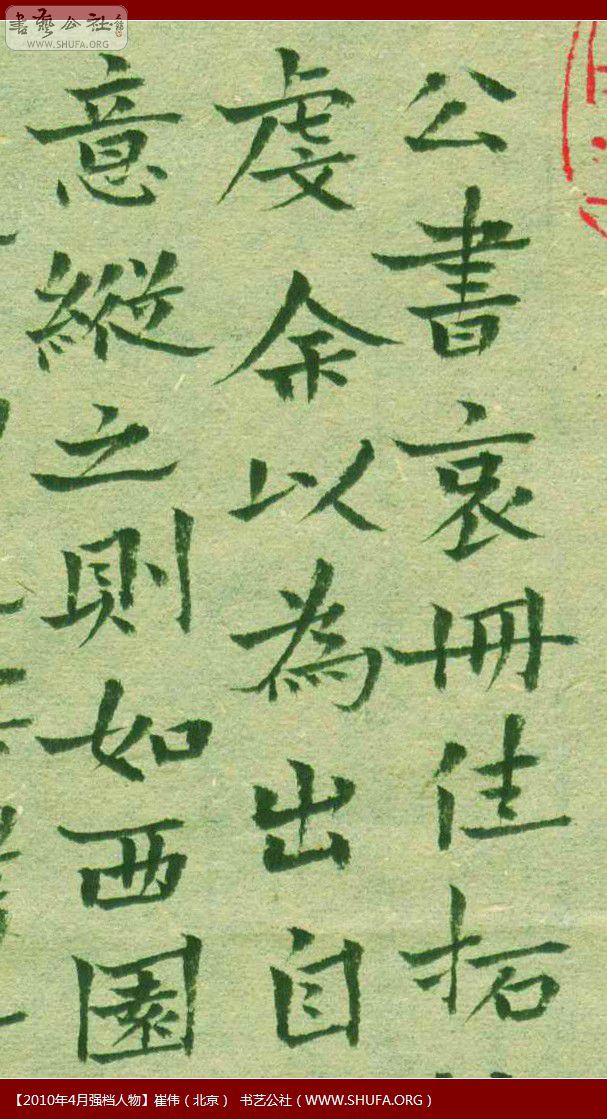 書藝公社
WWW.SHUFA.ORG
公書哀冊佳拓
虔余以為出自
意縱之則如西園
【2010年4月强档人物】崔伟（北京） 书艺公社（WWW.SHUFA.ORG）